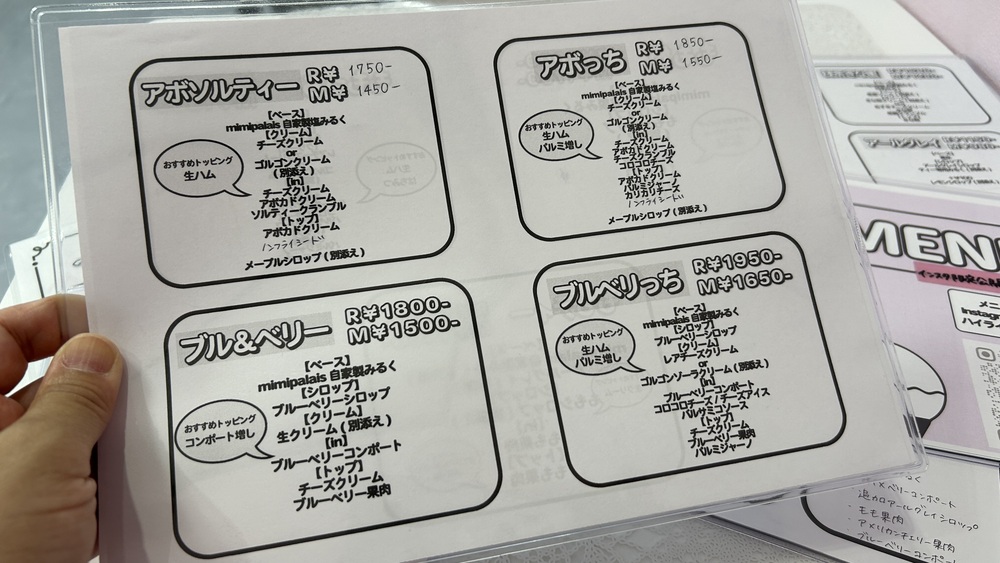 アボソルティー
R¥ 1750-
M¥ 1450-
【ベース】
mimipalais 自家製塩みるく
【クリーム】
チーズクリーム
or
ゴルゴンクリーム
(別添え)
【in】
チーズクリーム
アボカドクリーム
ソルティークランブル
【トップ】
アボカドクリーム
パンフライシード
メープルシロップ (別添え)
おすすめトッピング
生ハム
アボっち
R¥ 1850-
M¥ 1550-
【ベース】
mimipalais 自家製塩みるく
【クリーム】
チーズクリーム
or
ゴルゴンクリーム
(別添え)
【in】
アボカドクリーム
チーズクランブル
コロコロチーズ
【トップ】
アボカドクリーム
パルミジャーノ
カリカリチーズ
メープルシロップ (別添え)
おすすめトッピング
生ハム
パルミ増し
ブル&ベリー
R¥1800-
M¥1500-
【ベース】
mimipalais 自家製みるく
【シロップ】
ブルーベリーシロップ
【クリーム】
生クリーム (別添え)
【in】
ブルーベリーコンポート
【トップ】
チーズクリーム
ブルーベリー果肉
おすすめトッピング
コンポート増し
ブルベリっち
R¥1950-
M¥1650-
【ベース】
mimipalais 自家製みるく
【シロップ】
ブルーベリーシロップ
【クリーム】
レアチーズクリーム
or
ゴルゴンゾーラクリーム (別添え)
【in】
ブルーベリーコンポート
コロコロチーズ / チーズアイス
バルサミコソース
【トップ】
チーズクリーム
ブルーベリー果肉
パルミジャーノ
おすすめトッピング
生ハム
パルミ増し
アールグレイ
MEN
メニ
Instag
ハイラ
ベリーコンポート
追加アールグレイシロップ
・もも果肉
・アメリカンチェリー果肉
ブルーベリーコンポ